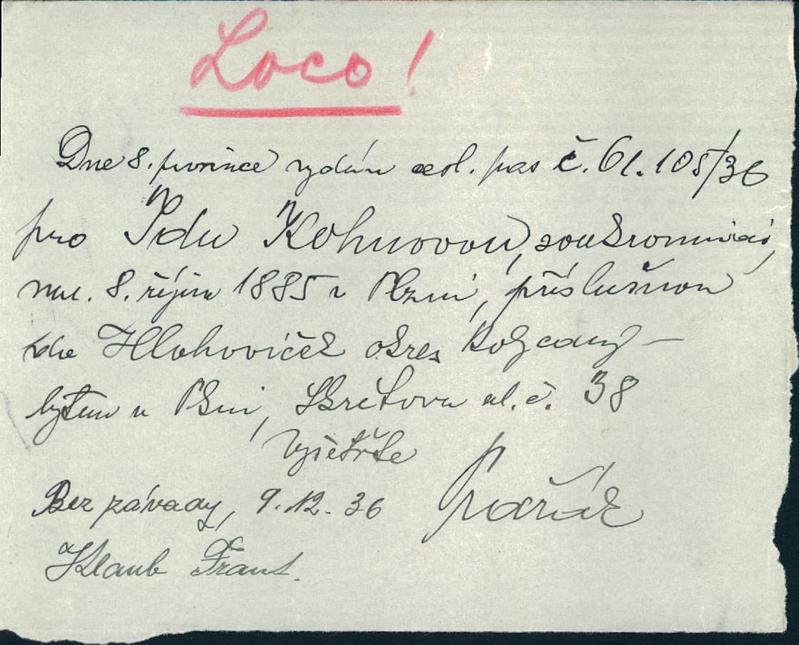 Loco!
Dne 8. prosince vydán cest. pas č. 61.105/36
pro Idu Kohnovou, soukromnici,
nar. 8. října 1885 v Plzni, příslušnou
do Hlohoviček okres
bytem v Plzni, Škrétova ul. č. 38
Vyšetřte
Bez závady, 9.12.36 Pražák
Klaub Frant.